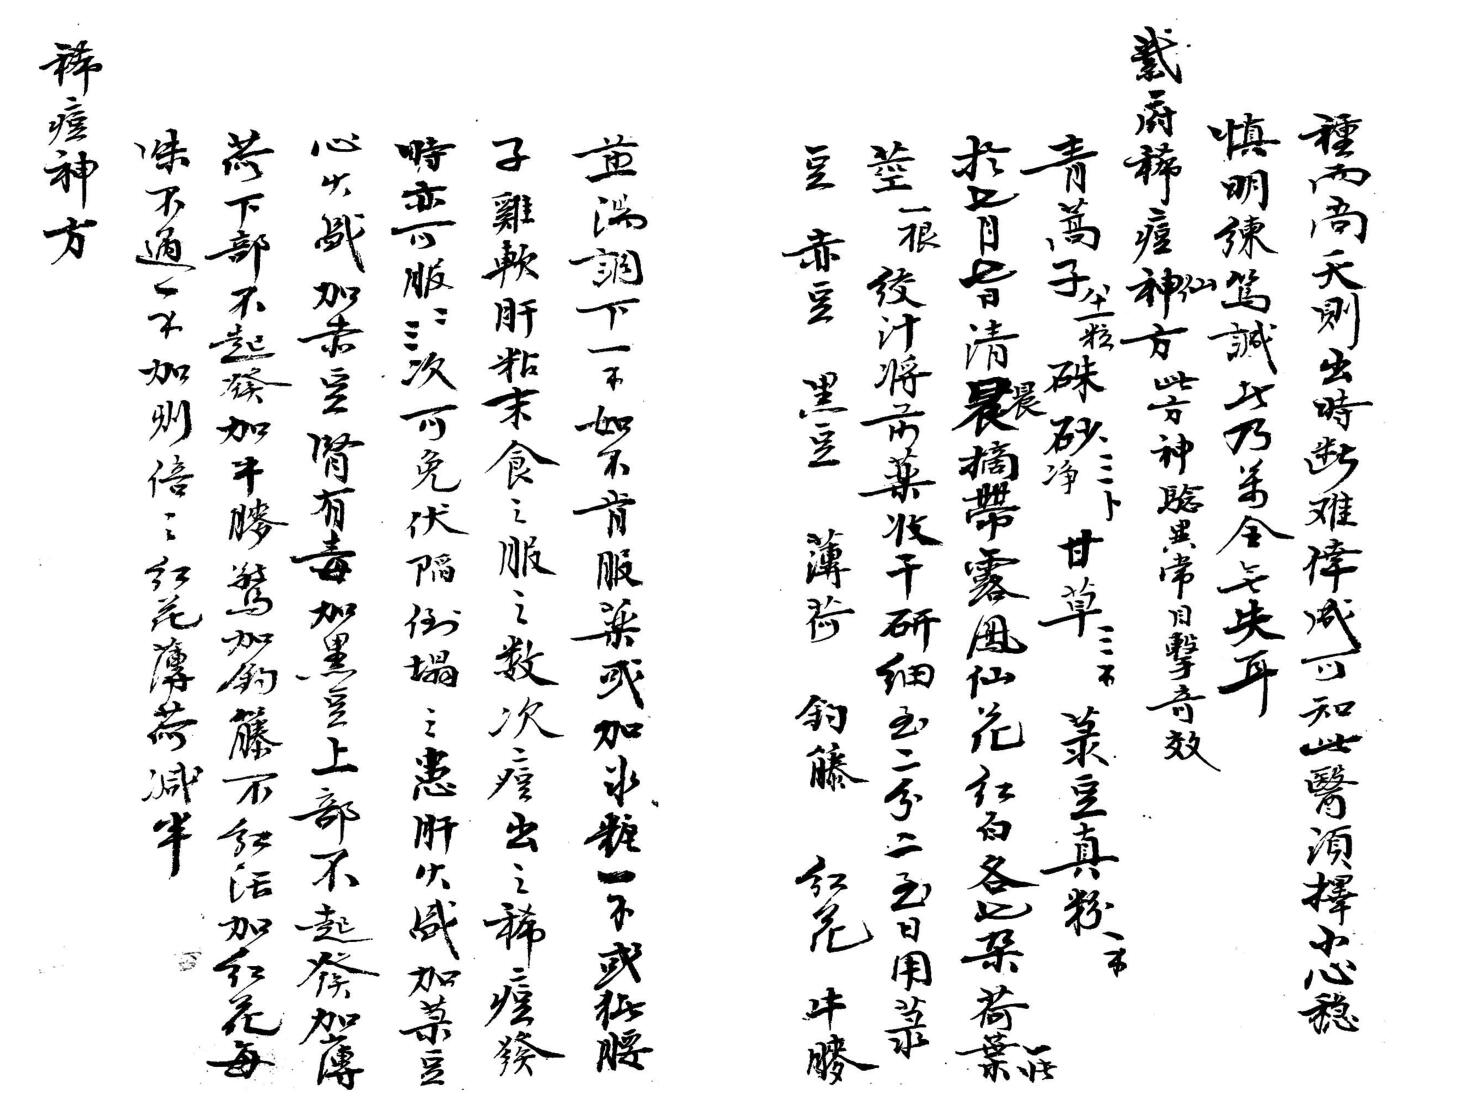 種而啇夭則出時斷难倖减可知此醫須擇小心穏
慎明練篤誠此乃萬全无失耳
繫府稀痘神仙方此方神驗異常目擊奇效
青蒿子 硃砂净 甘草 菉豆真粉
於七月七日清晨晨摘帶露鳳仙花红白各七朶荷葉
莖一根絞汁將前藥收干研细至二分二至日用菉
豆 赤豆 黑豆 薄荷 鈎籐 红花 牛膝
並湯調下一不如不肯服藥或加氷糖一不或
子雞軟肝粘末食之服之数次痘出之稀痘發
時亦可服二三次可免伏陷倒塌之患肝火盛加菉豆
心火盛加赤豆腎有毒加黑豆上部不起發加薄
荷下部不起發加牛膝驚加鈎籐不红活加红花每
味不過一不加則倍之红花薄荷减半
稀痘神方